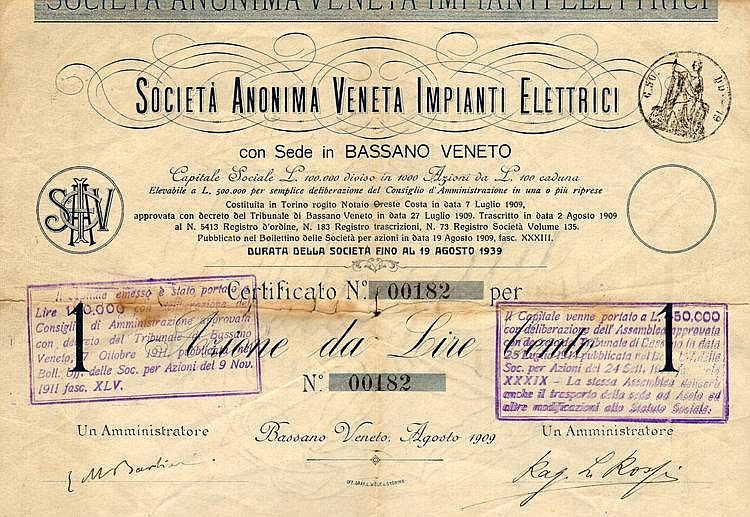 SOCIETÀ ANONIMA VENETA IMPIANTI ELETTRICI
SOCIETÀ ANONIMA VENETA IMPIANTI ELETTRICI
C. 50.
con Sede in BASSANO VENETO
Capitale Sociale L. 100.000 diviso in 1000 Azioni da L. 100 caduna
Elevabile a L. 500.000 per semplice deliberazione del Consiglio d'Amministrazione in una o più riprese
Costituita in Torino rogito Notaio Oreste Costa in data 7 Luglio 1909,
approvata con decreto del Tribunale di Bassano Veneto in data 27 Luglio 1909. Trascritto in data 2 Agosto 1909
al N. 5413 Registro d'ordine, N. 183 Registro trascrizioni, N. 73 Registro Società Volume 135.
Pubblicato nel Bollettino delle Società per azioni in data 19 Agosto 1909, fasc. XXXIII.
DURATA DELLA SOCIETÀ FINO AL 19 AGOSTO 1939
Certificato N.º 00182 per
1 Azione da Lire 1
N.º 00182
emesso è stato portato a
Lire
Consiglio di Amministrazione approvata
con decreto del Tribunale di Bassano
Veneto, 7 Ottobre 1911, nel
Boll. Uff. delle Soc. per Azioni del 9 Nov.
1911 fasc. XLV.
Il Capitale venne portato a L.
con deliberazione dell'Assemblea approvata
con decreto del Tribunale di Bassano in data
25 Luglio pubblicata nel
Soc. per Azioni del 24 Sett.
XXXIX - La stessa Assemblea deliberò
anche il trasporto della sede ad Asolo ed
altre modificazioni allo Statuto Sociale.
Un Amministratore
Bassano Veneto, Agosto 1909
Un Amministratore
Rag. L. Rossi